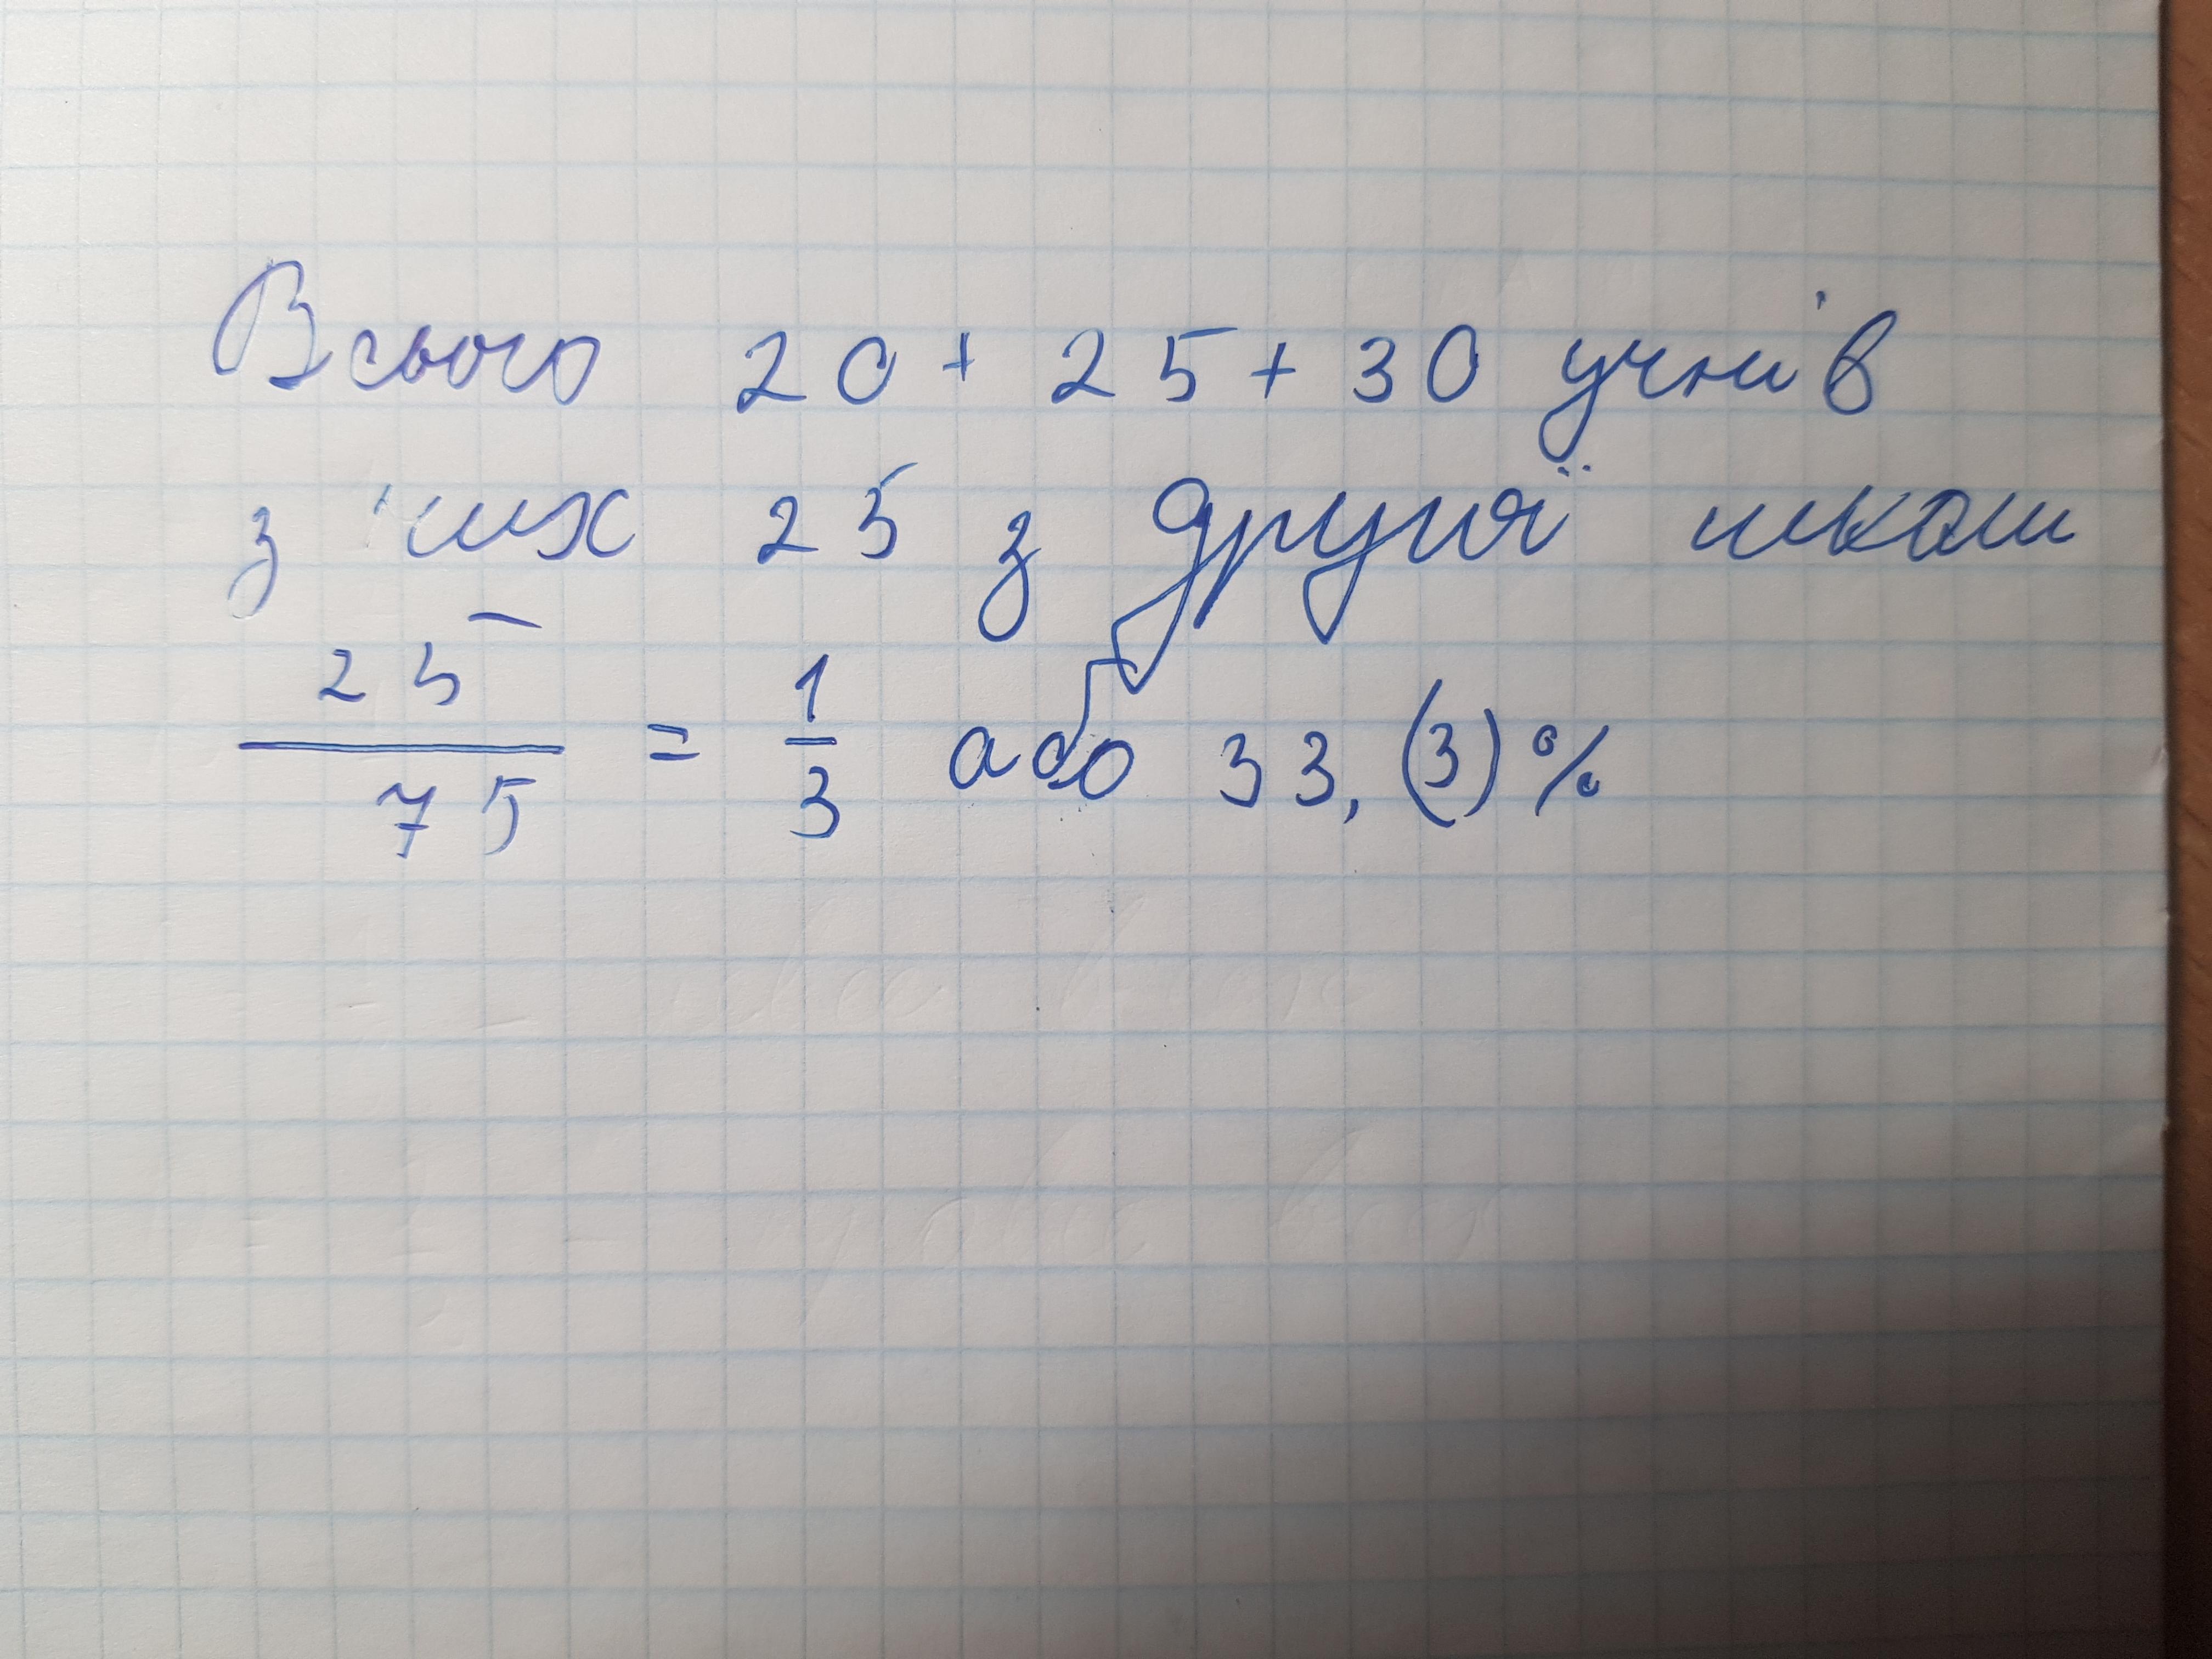 Всього 20 + 25 + 30 учнів
з них 25 з другої школи
25/75 = 1/3 або 33,(3)%